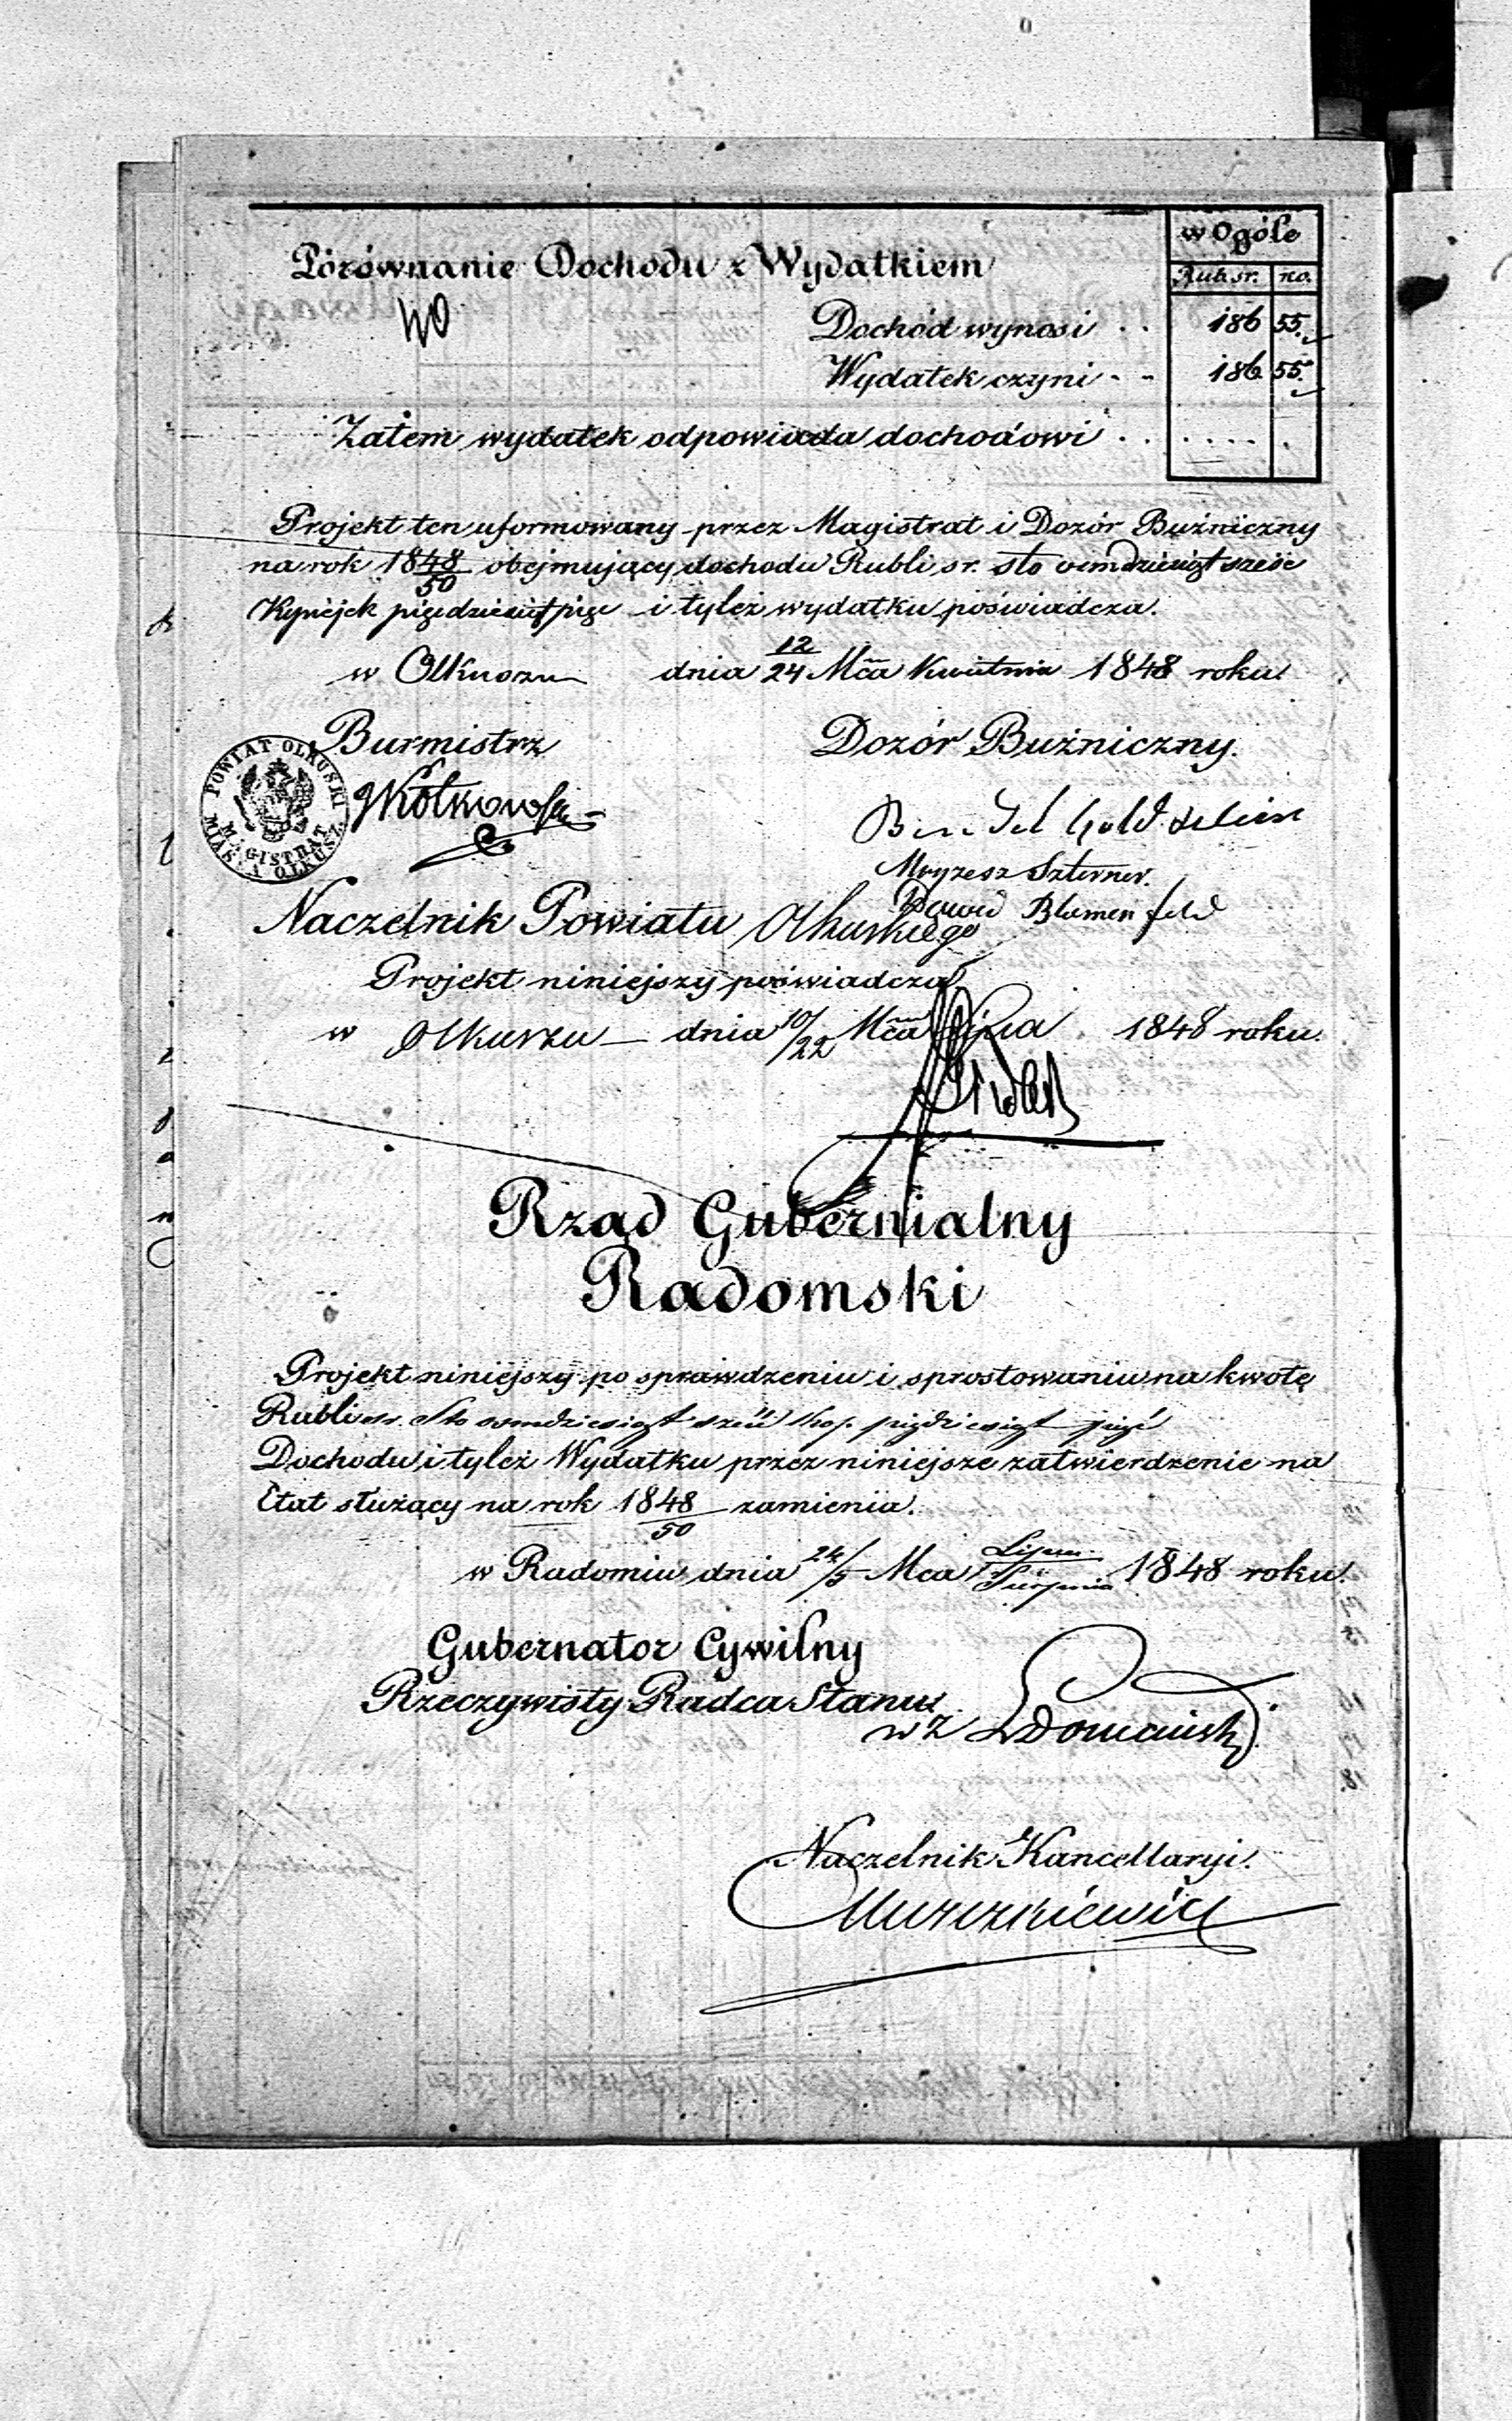 w Ogóle
Porównanie Dochodu z Wydatkiem
Rub. sr. | ko.
40
Dochód wynosi . . 186 55.
Wydatek czyni - - 186 55.
Zatem wydatek odpowiada dochodowi . . . . . . .
Projekt ten uformowany przez Magistrat i Dozór Bużniczny
na rok 1848/50 obejmujący dochodu Rubli sr. sto ośmdziesiąt sześć
Kopiejek pięćdziesiąt pięć i tyleż wydatku poświadcza.
w Olkuszu dnia 12/24 Mca Kwietnia 1848 roku.
Burmistrz Dozór Bużniczny.
POWIAT OLKUSKI
MAGISTRAT
MIASTA OLKUSZ
Moyzesz Szterner.
Dawid Blumenfeld
Naczelnik Powiatu Olkuskiego
Projekt niniejszy poświadcza
w Olkuszu dnia 10/22 Mca Lipca 1848 roku.
Rząd Gubernialny
Radomski
Projekt niniejszy po sprawdzeniu i sprostowaniu na kwotę
Rubli sr. Sto osmdziesiąt sześć kop. pięćdziesiąt pięć
Dochodu i tyleż Wydatku przez niniejsze zatwierdzenie na
Etat służący na rok 1848/50 zamienia.
w Radomiu dnia 24/5 Mca Lipca/Sierpnia 1848 roku.
Gubernator Cywilny
Rzeczywisty Radca Stanu
w z
Naczelnik Kancellaryi.